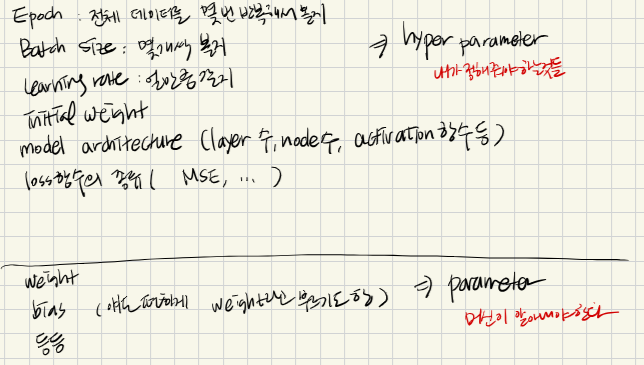 Epoch : 전체 데이터를 몇번 반복해서 볼지
Batch size : 몇개씩 볼지
learning rate : 얼만큼 갈지
initial weight
model architecture (layer 수, node수, activation함수 등)
loss함수의 종류 ( MSE, ... )
⇒ hyper parameter
내가 정해주어야 하는것들
weight
bias (얘도 퉁쳐서 weight라고 부르기도 함)
등등
⇒ parameter
머신이 알아내야 한다